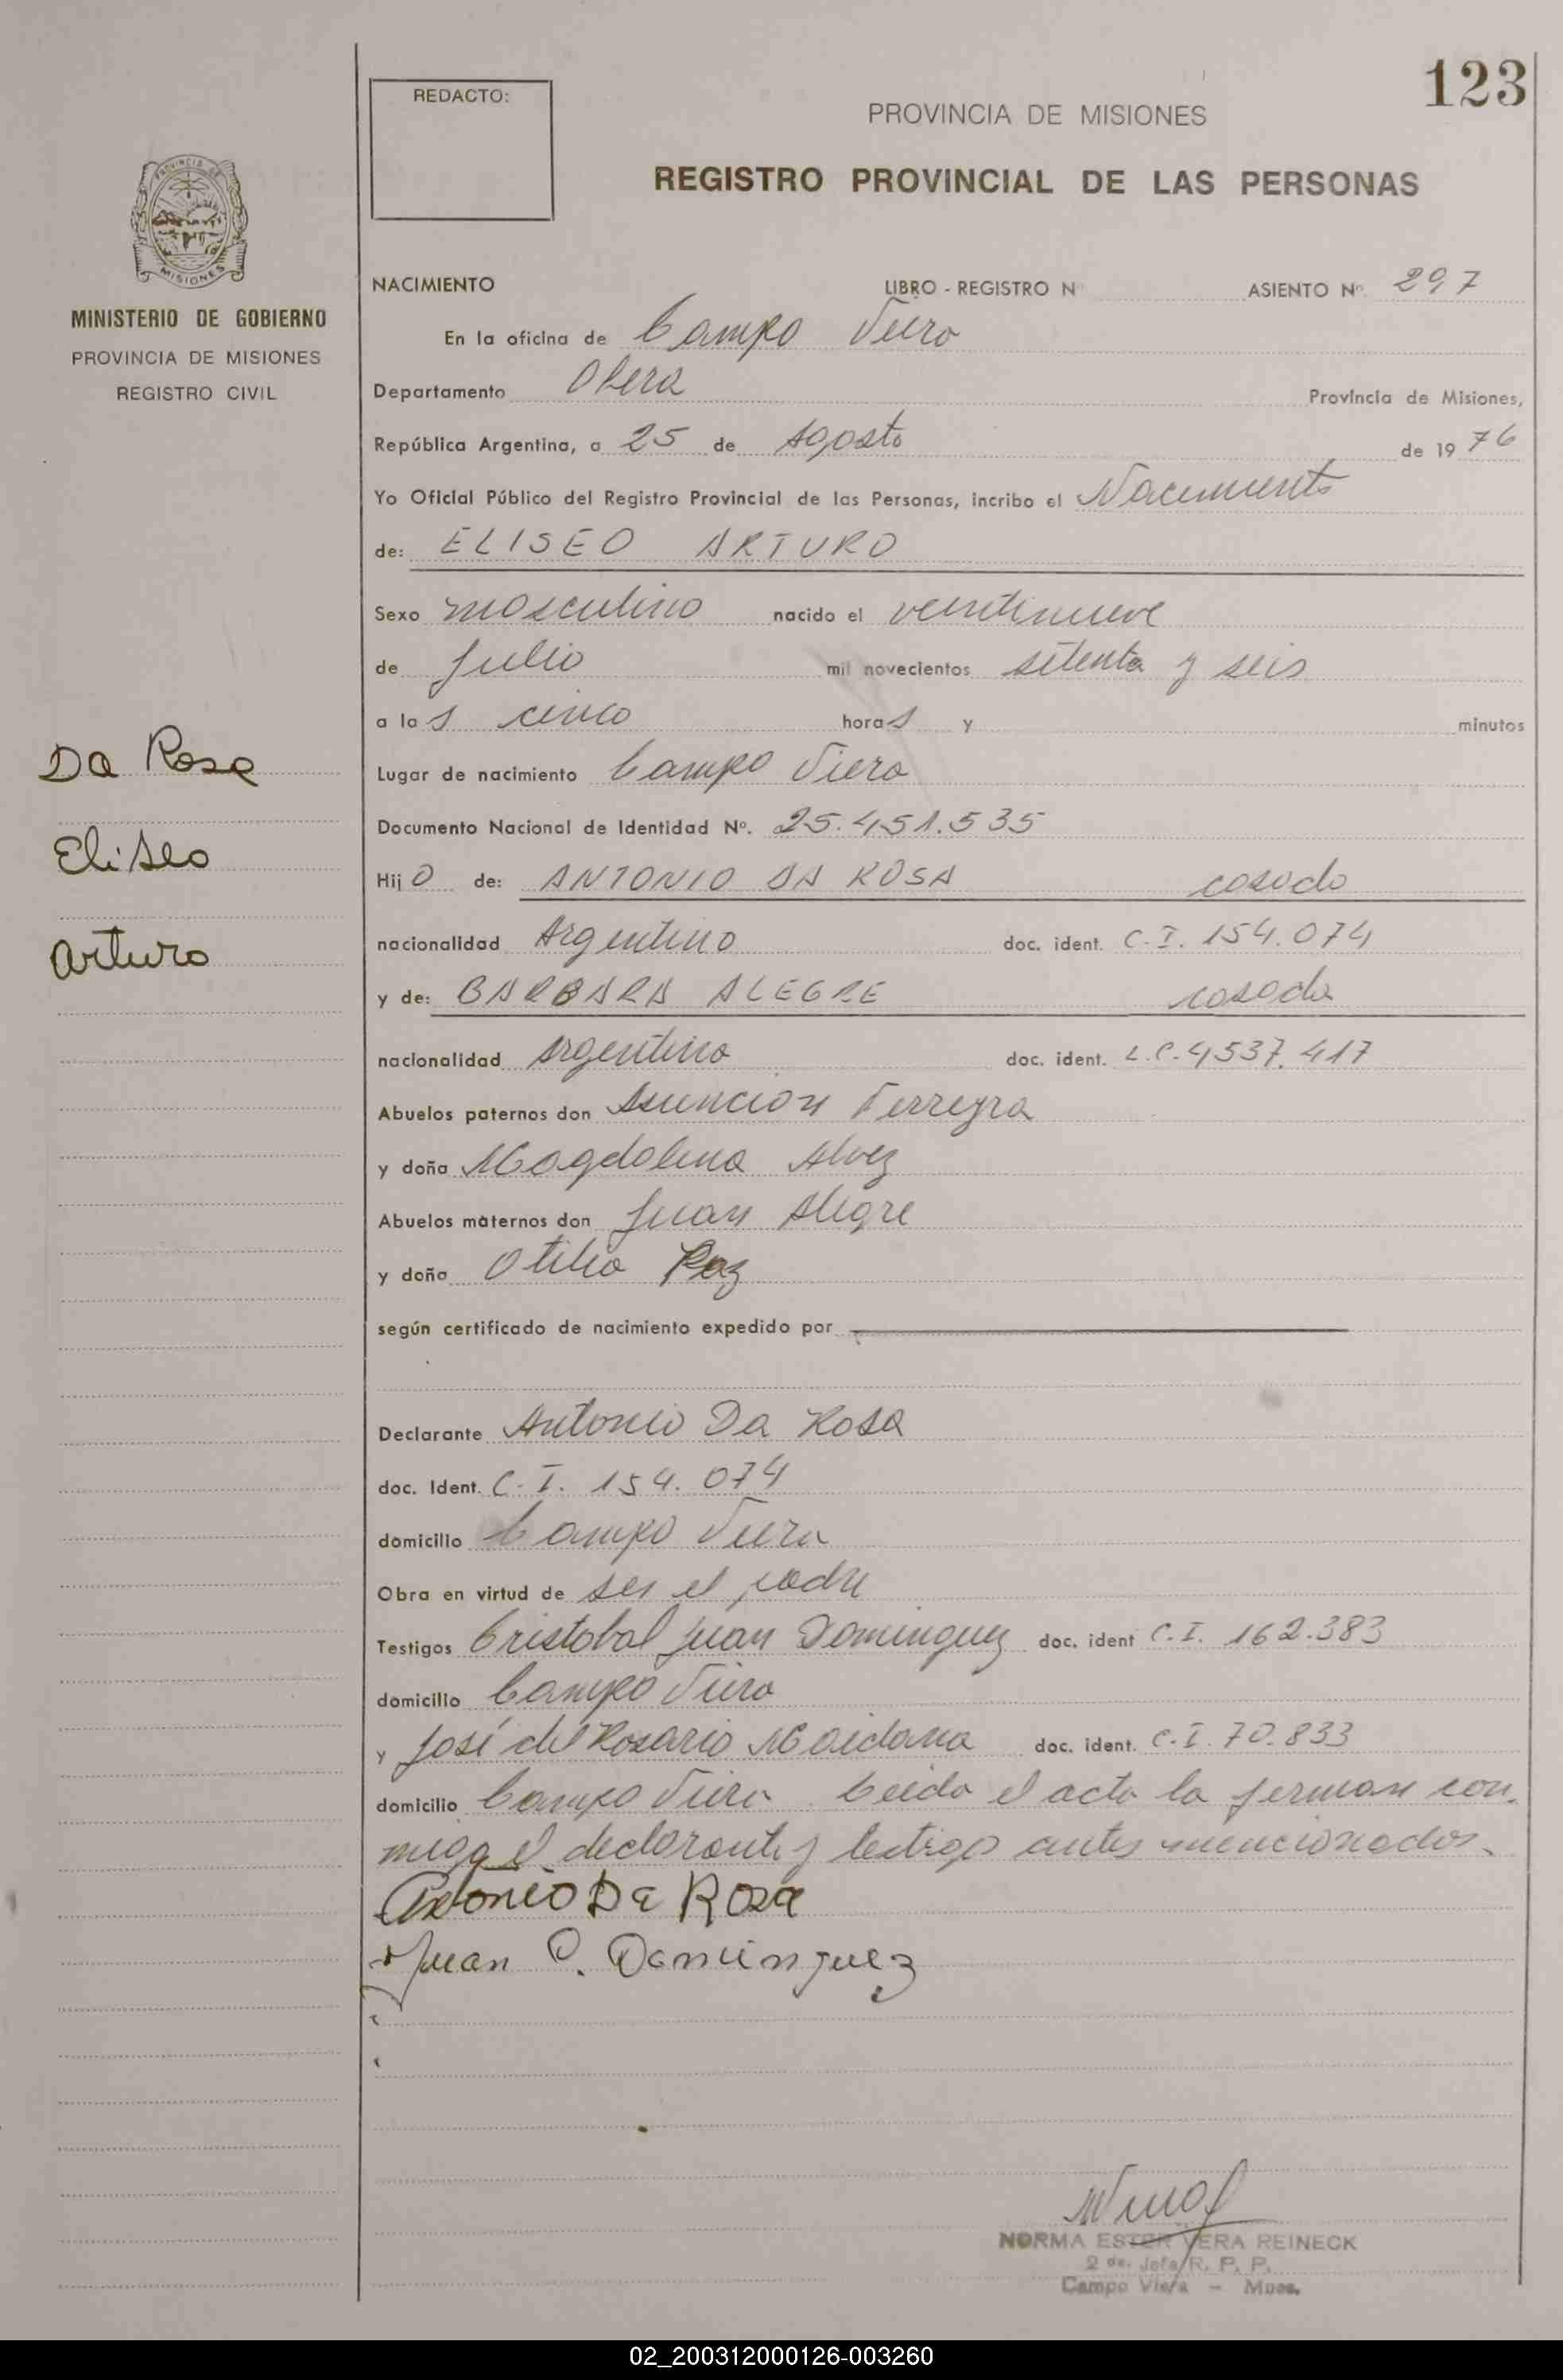 123
REDACTO:
PROVINCIA DE MISIONES
REGISTRO PROVINCIAL DE LAS PERSONAS
PROVINCIA DE
MISIONES
MINISTERIO DE GOBIERNO
PROVINCIA DE MISIONES
REGISTRO CIVIL
NACIMIENTO LIBRO - REGISTRO N ASIENTO Nº 297
En la oficina de Campo Viera
Departamento Obera Provincia de Misiones,
República Argentina, a 25 de Agosto de 1976
Yo Oficial Público del Registro Provincial de las Personas, incribo el Nacimiento
de: ELISEO ARTURO
Sexo masculino nacido el veintinueve
de Julio mil novecientos setenta y seis
a las cinco horas y minutos
Da Rosa
Eliseo
Arturo
Lugar de nacimiento Campo Viera
Documento Nacional de Identidad Nº. 25.451.535
Hijo de: ANTONIO DA ROSA casado
nacionalidad Argentino doc. ident. C.I. 154.074
y de: BARBARA ALEGRE casada
nacionalidad argentina doc. ident. L.C. 4537.417
Abuelos paternos don Asuncion Ferreyra
y doña Magdalena Alvez
Abuelos maternos don Juan Alegre
y doña Otilia Paz
según certificado de nacimiento expedido por
Declarante Antonio Da Rosa
doc. Ident. C.I. 154.074
domicilio Campo Viera
Obra en virtud de ser el padre
Testigos Cristobal Juan Dominguez doc. ident C.I. 162.383
domicilio Campo Viera
y José del Rosario Maidana doc. ident. C.I. 70.833
domicilio Campo Viera Leida el acta la firman con-
migo el declarante y testigo antes mencionados.
Antonio Da Rosa
Juan C. Dominguez
NORMA ESTER VERA REINECK
2 da. Jefa R. P. P.
Campo Viera - Mnes.
02_200312000126-003260